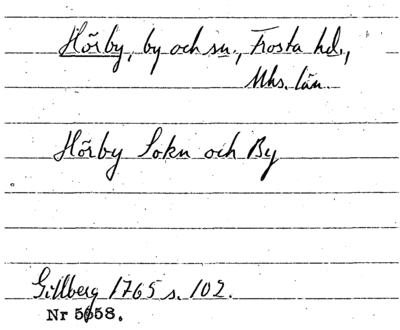 Hörby, by och sn., Frosta hd.,
Mhs. län.
Hörby Sokn och By
Gillberg 1765 s. 102.
Nr 5658.